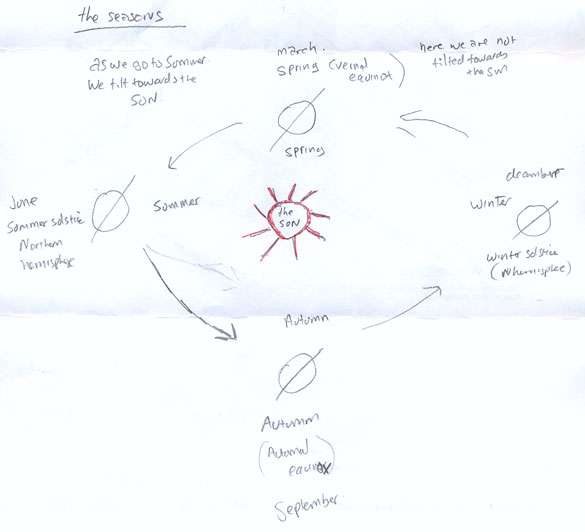 the seasons
as we go to Sommer.
We tilt towards the
SON.
march.
Spring (vernal
equinox)
here we are not
tilted towards
the sun
Spring
June
Sommer solstice
Northern
hemisphere
Sommer
the
SON
Winter
winter solstice
(N hemisphere)
Autumn
Autumn
(Autumnal
equinox)
September.